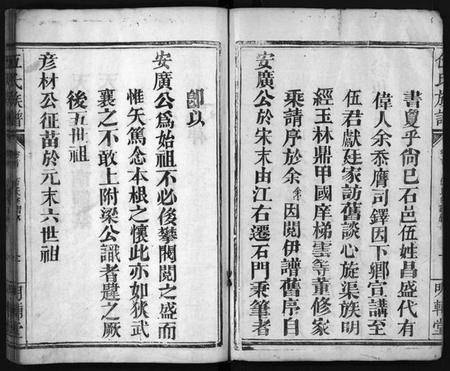 書夏乎尚已石邑伍姓昌盛代有
偉人余忝膺司鐸因下鄉宣講至
伍君獻廷家訪舊談心旋渠族明
經玉林鼎甲國庠梯雲等董修家
乘請序於余余因閱伊譜舊序自
安廣公於宋末由江右遷石門秉筆者
即以
安廣公為始祖不必俊攀閥閱之盛而
惟矢篤念本根之懷此亦如狄武
襄之不敢上附梁公識者韙之厥
後五世祖
彥材公征苗於元末六世祖
伍氏族譜
明輔堂